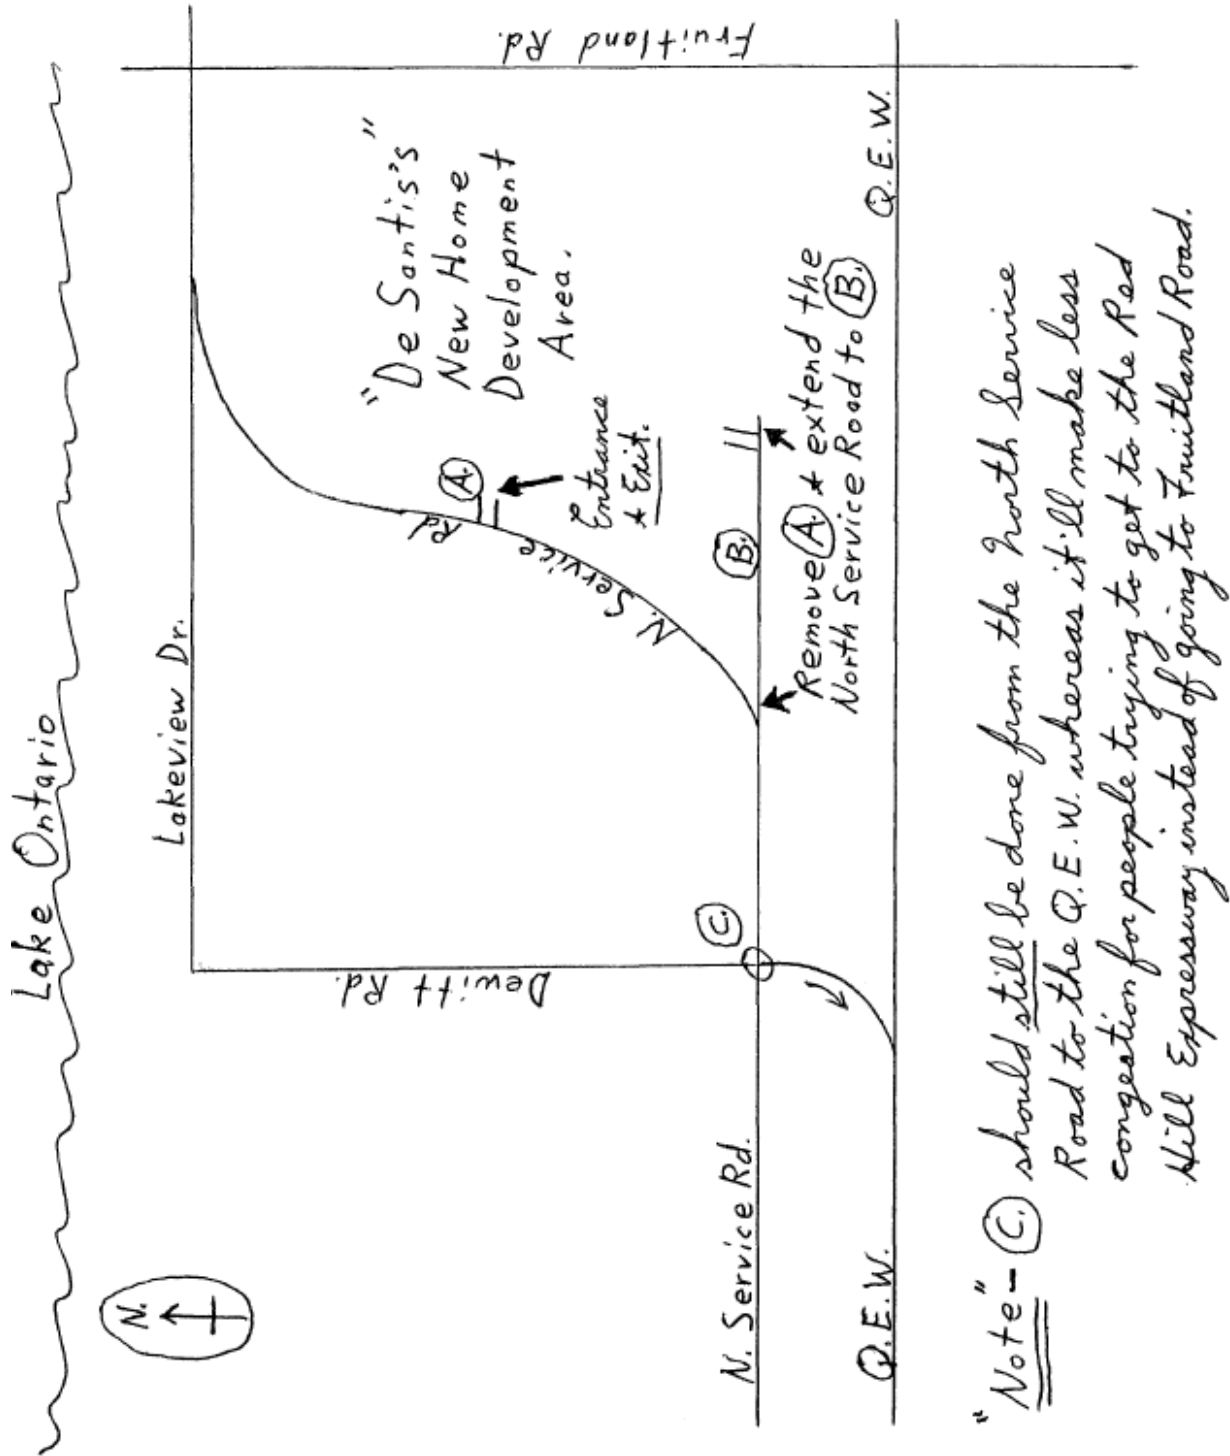 Lake Ontario
N.
Lakeview Dr.
Fruitland Rd.
"De Santis's"
New Home
Development
Area.
A.
Entrance
& Exit.
N. Service Rd
Dewitt Rd.
C.
B.
Remove A. & extend the
North Service Road to B.
N. Service Rd.
Q.E.W.
Q.E.W.
"Note" - C. should still be done from the North Service
Road to the Q.E.W. whereas it'll make less
congestion for people trying to get to the Red
Hill Expressway instead of going to Fruitland Road.